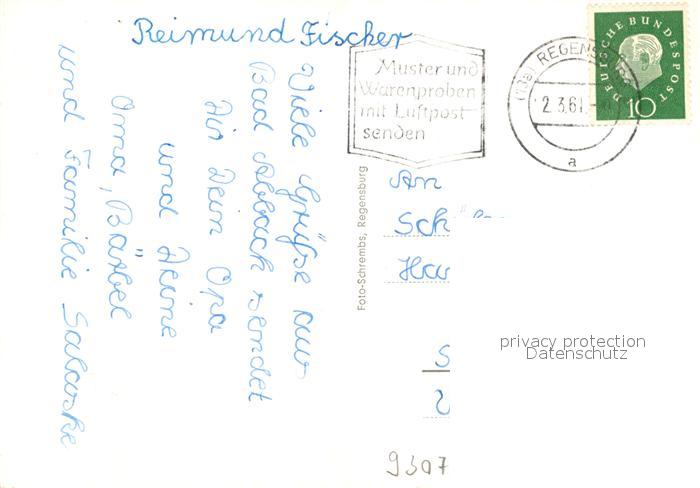 Reimund Fischer
Viele Grüße aus
Bad Abbach sendet
Dir Dein Opa
und Deine
Oma, Bärbel
und Familie
Foto-Schrembs, Regensburg
Muster und
Warenproben
mit Luftpost
senden
(13a) REGENSB
2.3.61
a
DEUTSCHE BUNDESPOST
10
An
Sch
Ha
S
9307
privacy protection
Datenschutz